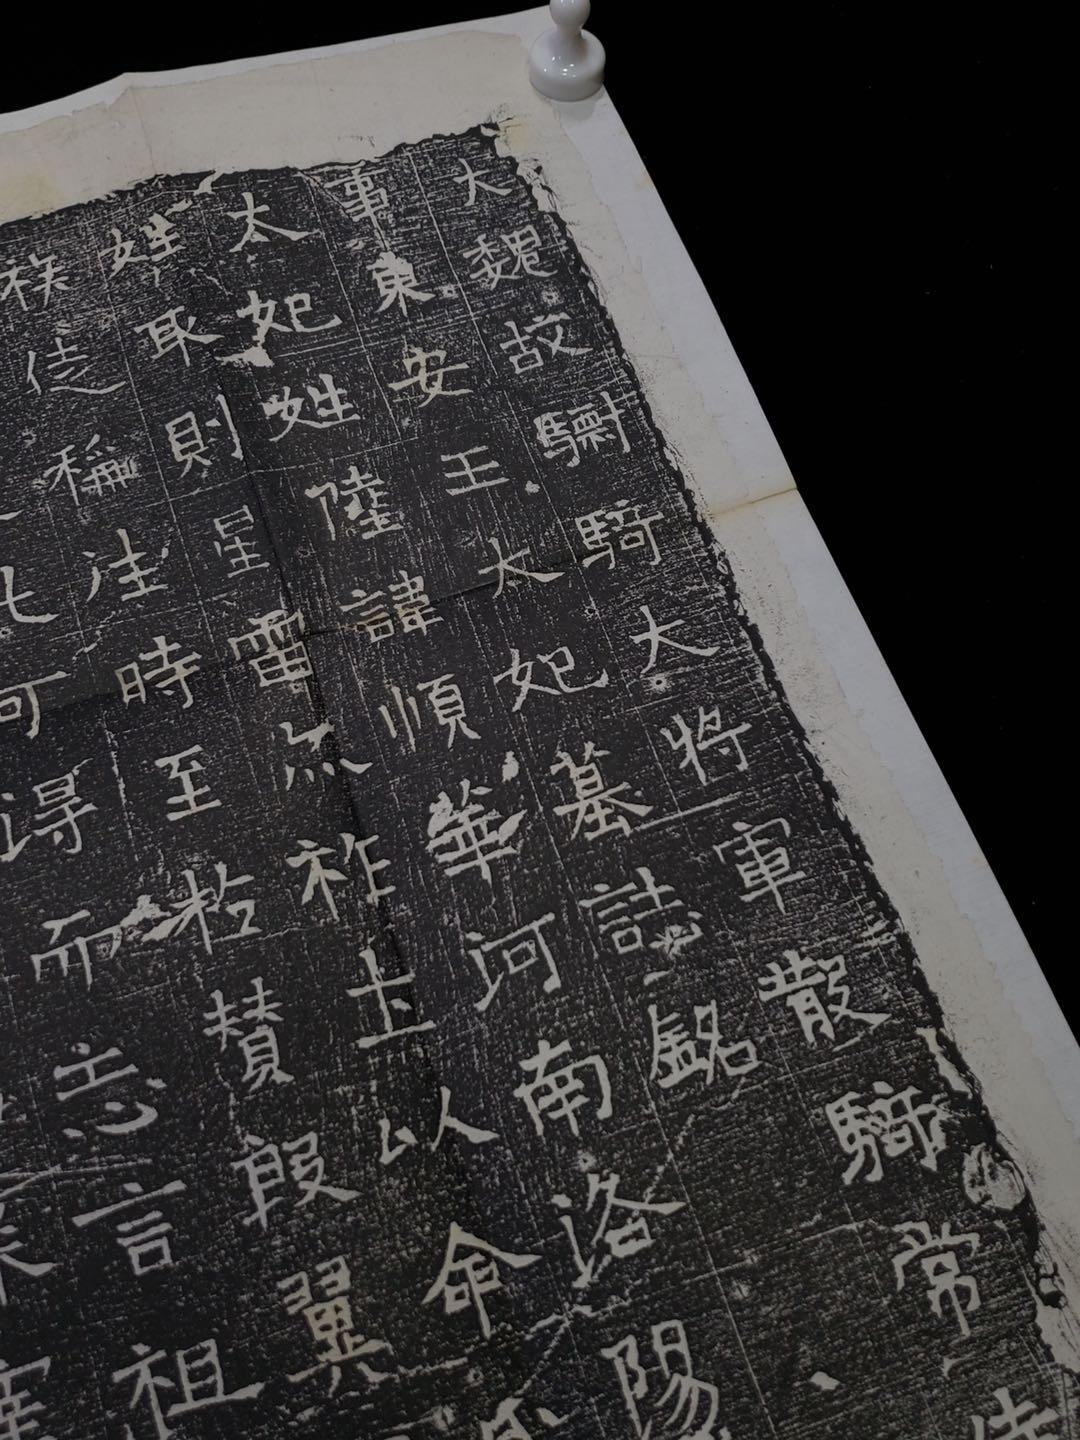 大魏故驃騎大將軍散騎常侍
事東安王太妃墓誌銘
太妃姓陸諱順華河南洛陽
姓取則星雷無祚土以命
族徒稱注時至於贊叚翼
可得而志言祖